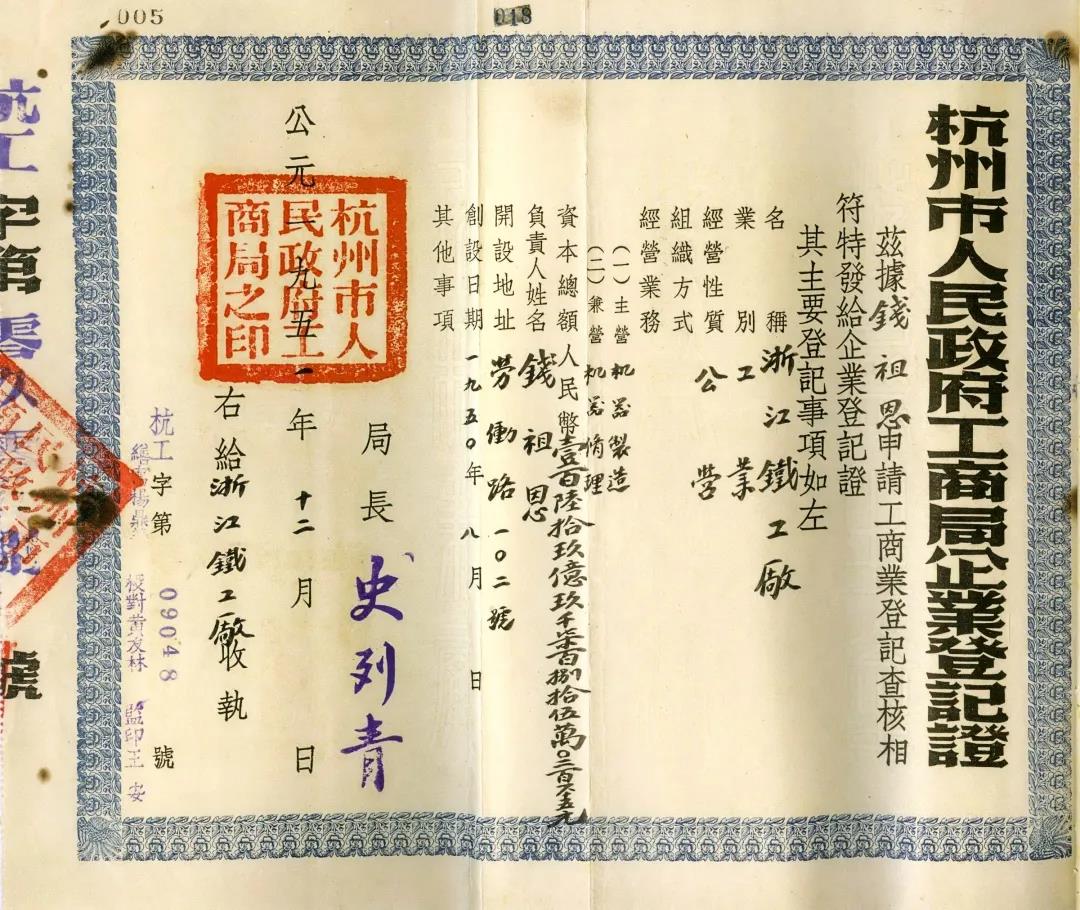 005
018
杭州市人民政府工商局企業登記證
茲據錢祖恩申請工商業登記查核相
符特發給企業登記證
其主要登記事項如左
名稱 浙江鐵工廠
業別 工業
經營性質 公營
組織方式
經營業務
(一)主營 机器製造
(二)兼營 机器脩理
資本總額 人民幣壹百陸拾玖億玖千柒百捌拾伍萬
負責人姓名 錢祖恩
開設地址 劳働路一〇二號
創設日期 一九五〇年八月 日
其他事項
局長 史列青
公元一九五一年十二月 日
杭州市人民政府工商局之印
右給浙江鐵工廠收執
杭工字第09048號
校對黃友林 監印王安
杭工字第零 號